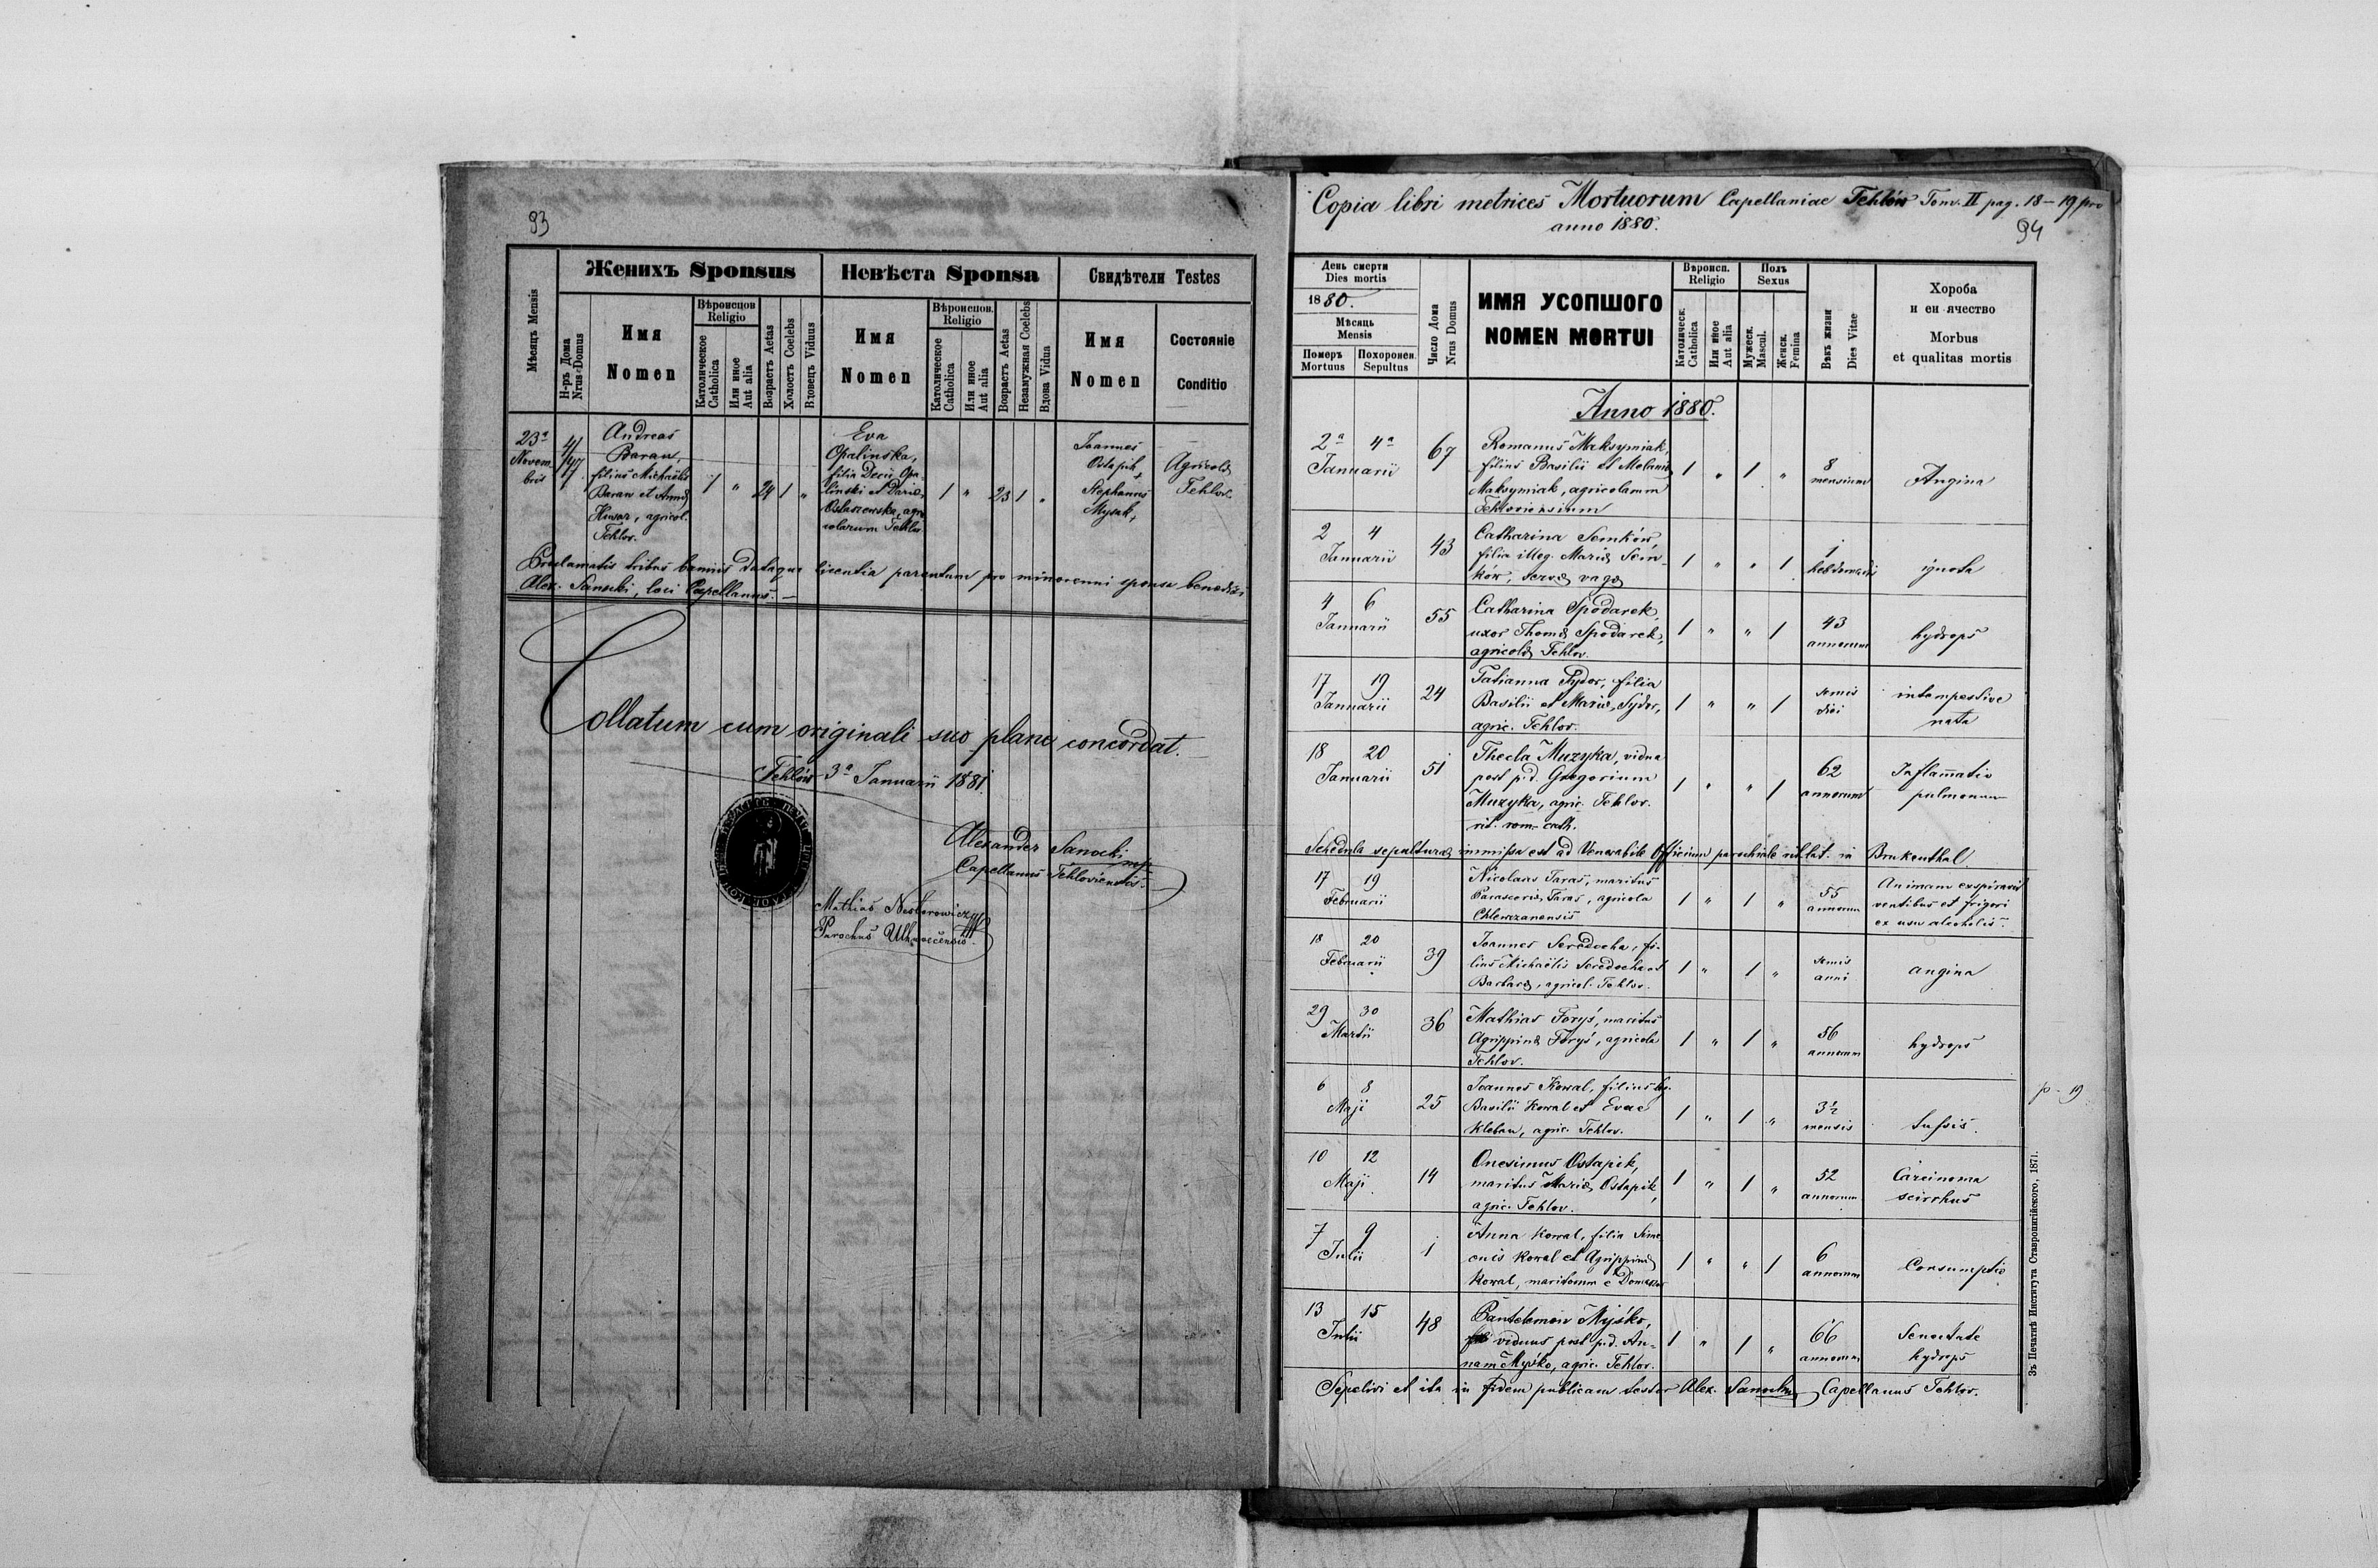 93
Мѣсяцъ Mensis
Женихъ Sponsus
Невѣста Sponsa
Свидѣтели Testes
Н-ръ Дома Nrus Domus
Имя Nomen
Вѣроисцов Religio
Католическое Catholica
Или иное Aut alia
Возрастъ Aetas
Холостъ Coelebs
Вдовецъ Viduus
Имя Nomen
Вѣроисцов. Religio
Католическое Catholica
Или иное Aut alia
Возрастъ Aetas
Незамужная Coelebs
Вдова Vidua
Имя Nomen
Состояніе Conditio
23ª Novembris
Andreas
Baran,
filius Michaëlis
Baran et Annæ
Husar, agricol.
Tehlov.
1 " 24 1 "
Eva
Opalinska,
filia Decii Opa
linski et Dariæ
Ostaszewska, agri
colarum Tehlov
1 " 23 1 "
Joannes
Ostapik +
Stephanus
Mysak +
Agricolæ
Tehlov.
Proclamatis tribus bannis dataque licentia parentum pro minorenni sponsa benedixi
Alex. Sanocki, loci Capellanus. —
Collatum cum originali suo plane concordat.
Tehlów 3ª Januarii 1881.
Alexander Sanocki mp
Capellanus Tehloviensis.
Mathias Nesterowicz
Parochus Uhnoviensis.
Copia libri metrices Mortuorum Capellaniae Tehlów Tom. II pag. 18 – 19 pro
anno 1880.
94
День смерти Dies mortis
1880.
Мѣсяць Mensis
Померъ Mortuus
Похоронен. Sepultus
Число Дома Nrus Domus
ИМЯ УСОПШОГО
NOMEN MORTUI
Вѣроисп. Religio
Католическ. Catholica
Или иное Aut alia
Полъ Sexus
Мужеск. Mascul.
Женск. Femina
Вѣкъ жизни Dies Vitae
Хороба
и еи ячество
Morbus
et qualitas mortis
Anno 1880.
2ª 4ª Januarii 67
Romanus Maksymiak,
filius Basilii et Melaniæ
Maksymiak, agricolarum
Tehloviensium
1 " 1 " 8 mensium Angina
2 4 Januarii 43
Catharina Semków,
filia illeg. Mariæ Sem-
ków, servæ vagæ
1 " " 1 1 hebdomadis ignota
4 6 Januarii 55
Catharina Spodarek,
uxor Thomæ Spodarek,
agricolæ Tehlov.
1 " " 1 43 annorum hydrops
17 19 Januarii 24
Tatianna Sydor, filia
Basilii et Mariæ Sydor,
agric. Tehlov.
1 " " 1 semis diei intempestive nata
18 20 Januarii 51
Thecla Muzyka, vidua
post p.d. Gregorium
Muzyka, agric. Tehlov.
rit. rom-cath.
1 " " 1 62 annorum Inflammatio pulmonum
Schedula sepulturæ immissa est ad Venerabile Officium parochiale rit. lat. in Brukenthal
17 19 Februarii
Nicolaus Taras, maritus
Parascevæ Taras, agricola
1 " 1 " 55 annorum
Animam exspiravit
ventibus et frigori
ex usu alcoholis.
18 20 Februarii 39
Joannes Seredocha, fi-
lius Michaëlis Seredocha et
Barbaræ, agricol. Tehlov.
1 " 1 " semis anni angina
29 30 Martii 36
Mathias Foryś, maritus
Agrippinæ Foryś, agricola
Tehlov.
1 " 1 " 56 annorum hydrops
6 8 Maji 25
Joannes Kowal, filius leg.
Basilii Kowal et Evae
Kleban, agric. Tehlov.
1 " 1 " 3½ mensis tussis.
p. 19
10 12 Maji 14
Onesimus Ostapik,
maritus Mariæ Ostapik,
agric. Tehlov.
1 " 1 " 52 annorum Carcinoma scirrhus
7 9 Julii 1
Anna Kowal, filia Sime
onis Kowal et Agrippinæ
Kowal, maritorum e
1 " " 1 6 annorum Consumptio
13 15 Julii 48
Pantelemon Myśko,
viduus post p.d. An-
nam Myśko, agric. Tehlov.
1 " 1 " 66 annorum Senectute hydrops
Sepelivi et ita in fidem publicam testor Alex. Sanocki Capellanus Tehlov.
Зъ Печатнѣ Института Ставропигійского, 1871.